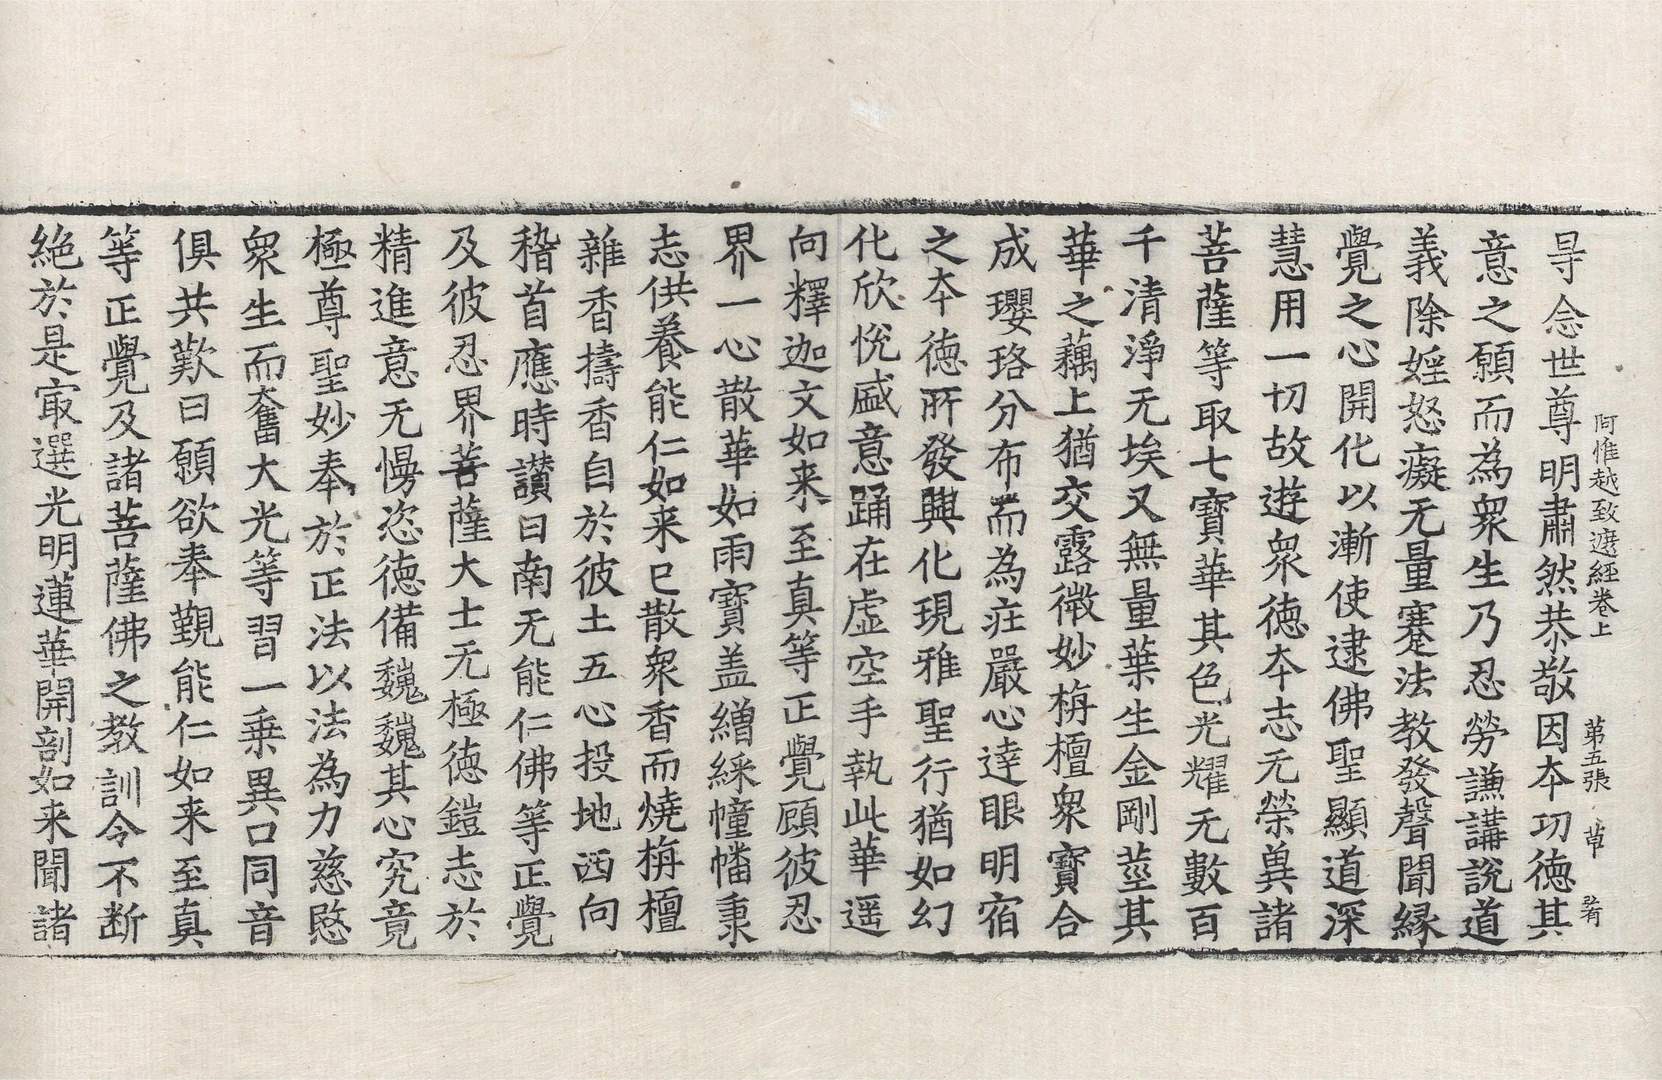 阿惟越致遮經卷上 第五張 草
㝵念世尊明肅然恭敬因本功德其
意之願而為衆生乃忍勞謙講說道
義除婬怒癡无量蹇法教發聲聞縁
覺之心開化以漸使逮佛聖顯道深
慧用一切故遊衆徳本志无榮兾諸
菩薩等取七寶華其色光耀无數百
千清淨无埃又無量葉生金剛莖其
華之藕上猶交露微妙栴檀衆寶合
成瓔珞分布而為莊嚴心達眼明宿
之本徳所發興化現雅聖行猶如幻
化欣悅盛意踊在虛空手執此華遥
向釋迦文如来至真等正覺顧彼忍
界一心散華如雨寶盖繒綵幢幡秉
志供養能仁如来已散衆香而燒栴檀
雜香擣香自於彼土五心投地西向
稽首應時讃曰南无能仁佛等正覺
及彼忍界菩薩大士无極徳鎧志於
精進意无慢恣徳備巍巍其心究竟
極尊聖妙奉於正法以法為力慈愍
衆生而奮大光等習一乗異口同音
俱共歎曰願欲奉覲能仁如来至真
等正覺及諸菩薩佛之教訓令不断
絶於是㝡選光明蓮華開剖如来聞諸